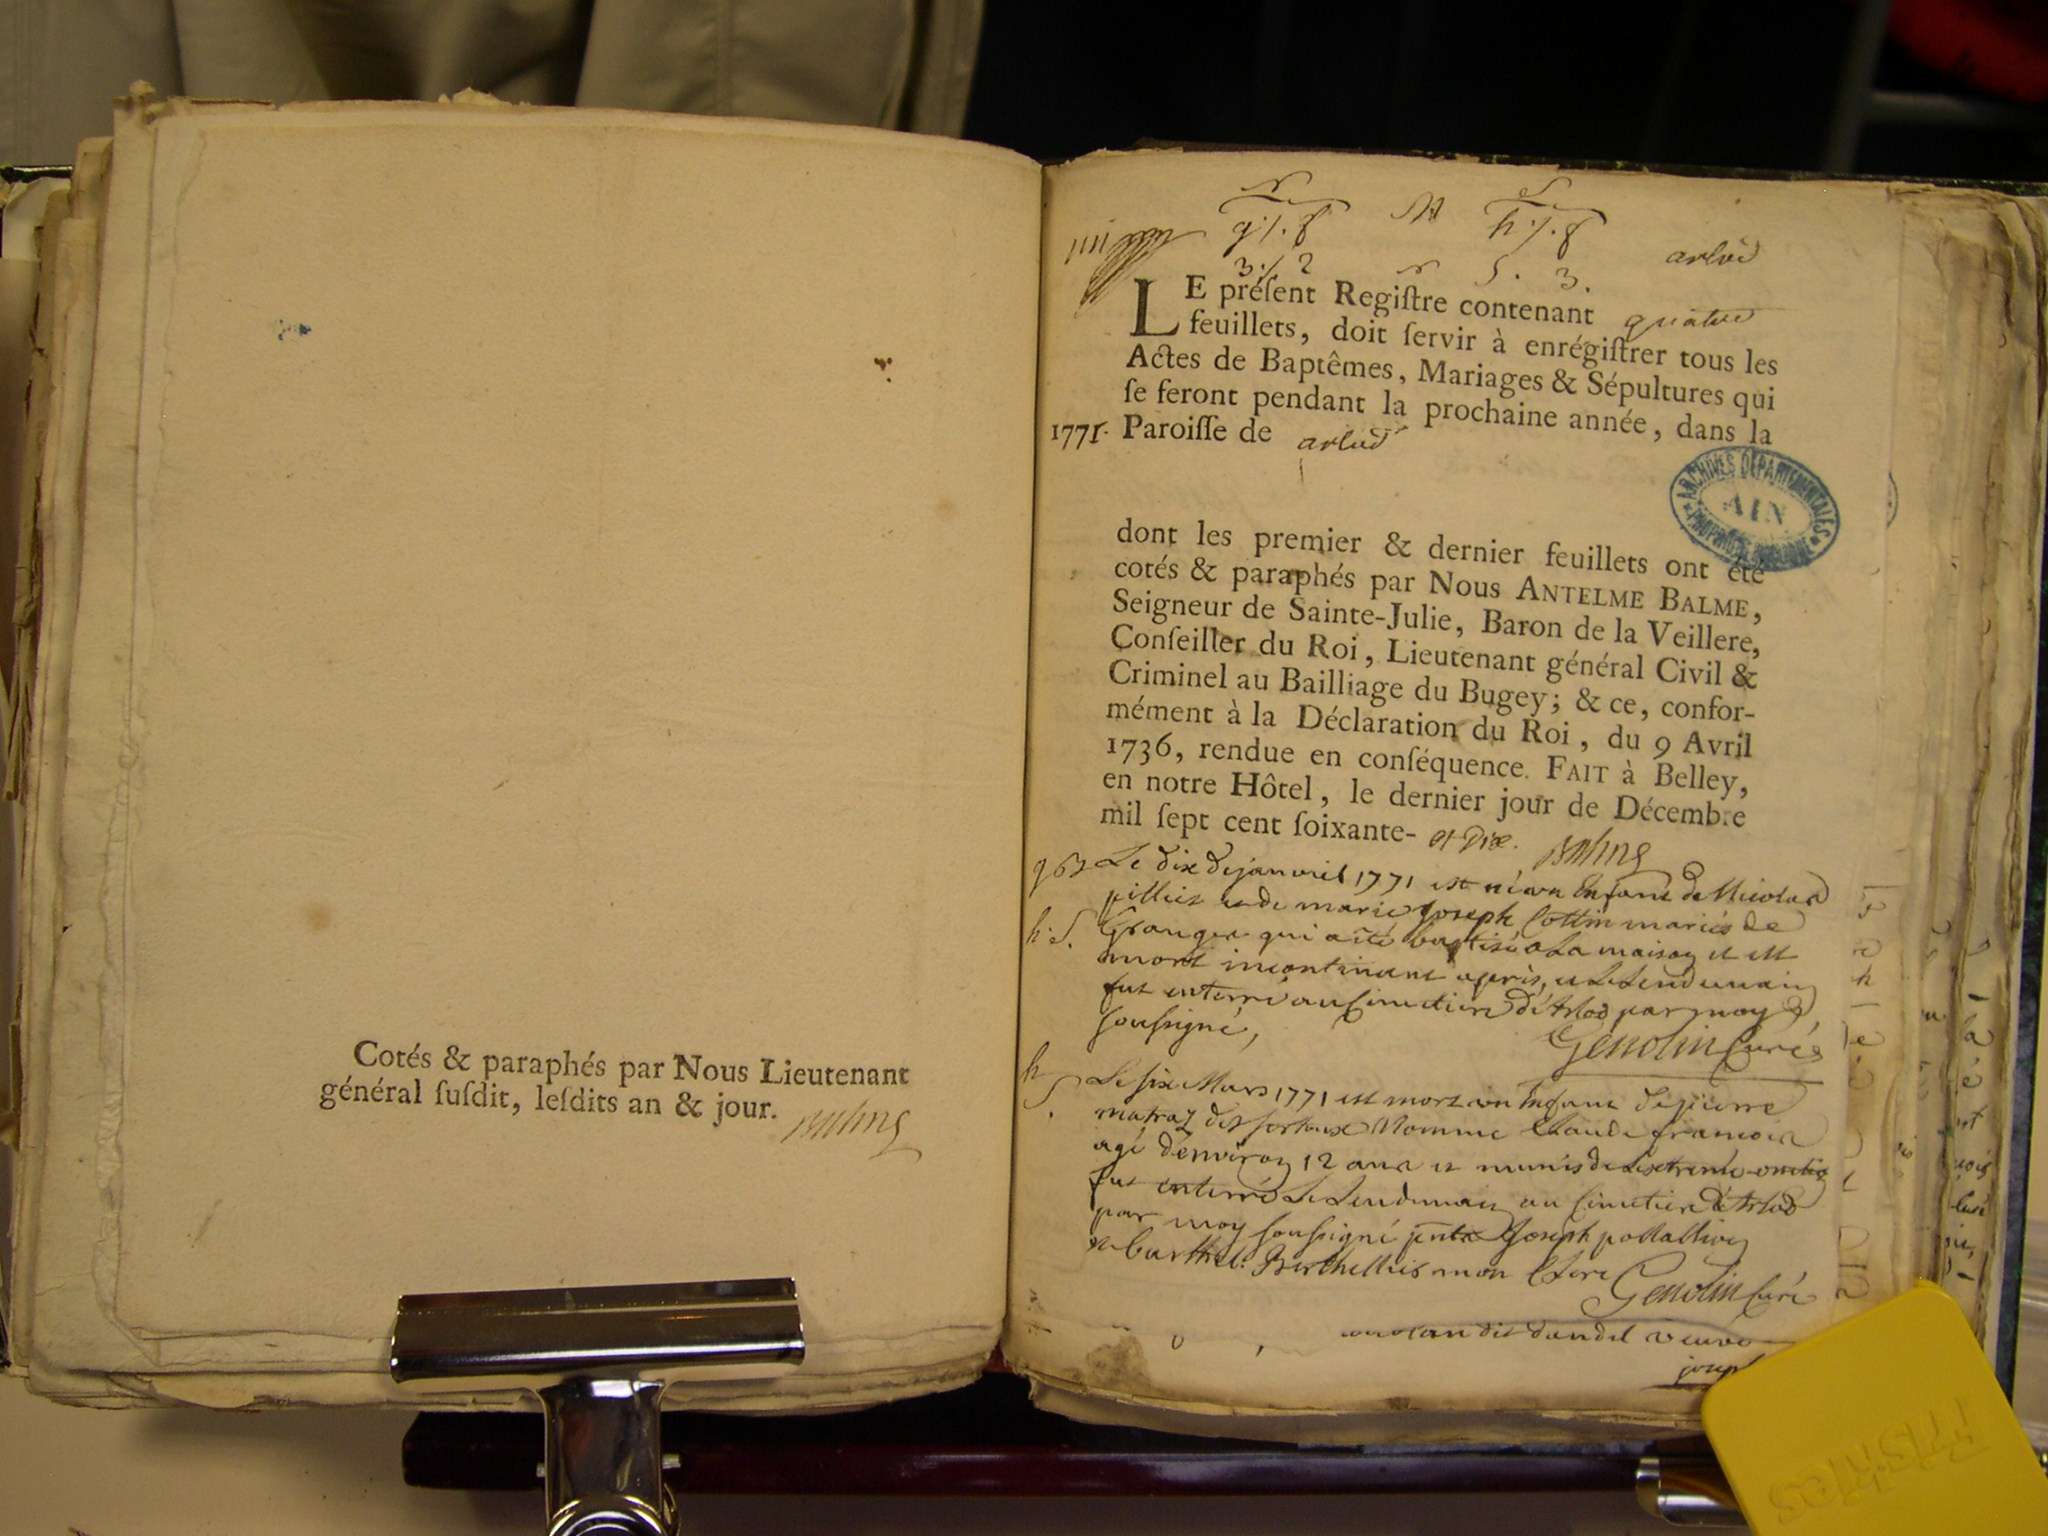 Cotés & paraphés par Nous Lieutenant
général ſuſdit, leſdits an & jour.
arlod
LE préſent Regiſtre contenant quatre
feuillets, doit ſervir à enrégiſtrer tous les
Actes de Baptêmes, Mariages & Sépultures qui
ſe feront pendant la prochaine année, dans la
1771. Paroiſſe de arlod
ARCHIVES DÉPARTEMENTALES
AIN
dont les premier & dernier feuillets ont été
cotés & paraphés par Nous ANTELME BALME,
Seigneur de Sainte-Julie, Baron de la Veillere,
Conſeiller du Roi, Lieutenant général Civil &
Criminel au Bailliage du Bugey; & ce, confor-
mément à la Déclaration du Roi, du 9 Avril
1736, rendue en conſéquence. FAIT à Belley,
en notre Hôtel, le dernier jour de Décembre
mil ſept cent ſoixante- et Dix. Balme
Le dix de janvies 1771 est né un Enfant de Nicolas
pilliet et de marie Joseph Cottin mariés de
h. S. Granges qui a été baptisé a La maison et est
mort incontinent après, et Le Lendemain
fut enterré au Cimetiere d'Arlod par moy
soussigné, Genolin Curé
h S. Le six Mars 1771 est mort un Enfant de pierre
matraz dit Nommé Claude françois
agé d'environ 12 ans et munis de Lextreme onction
fut enterré Le Lendemain au Cimetiere d'Arlod
par moy soussigné Joseph
et Barthel. Berthellier mon Clerc Genolin Curé
dit dandel veuve
joseph